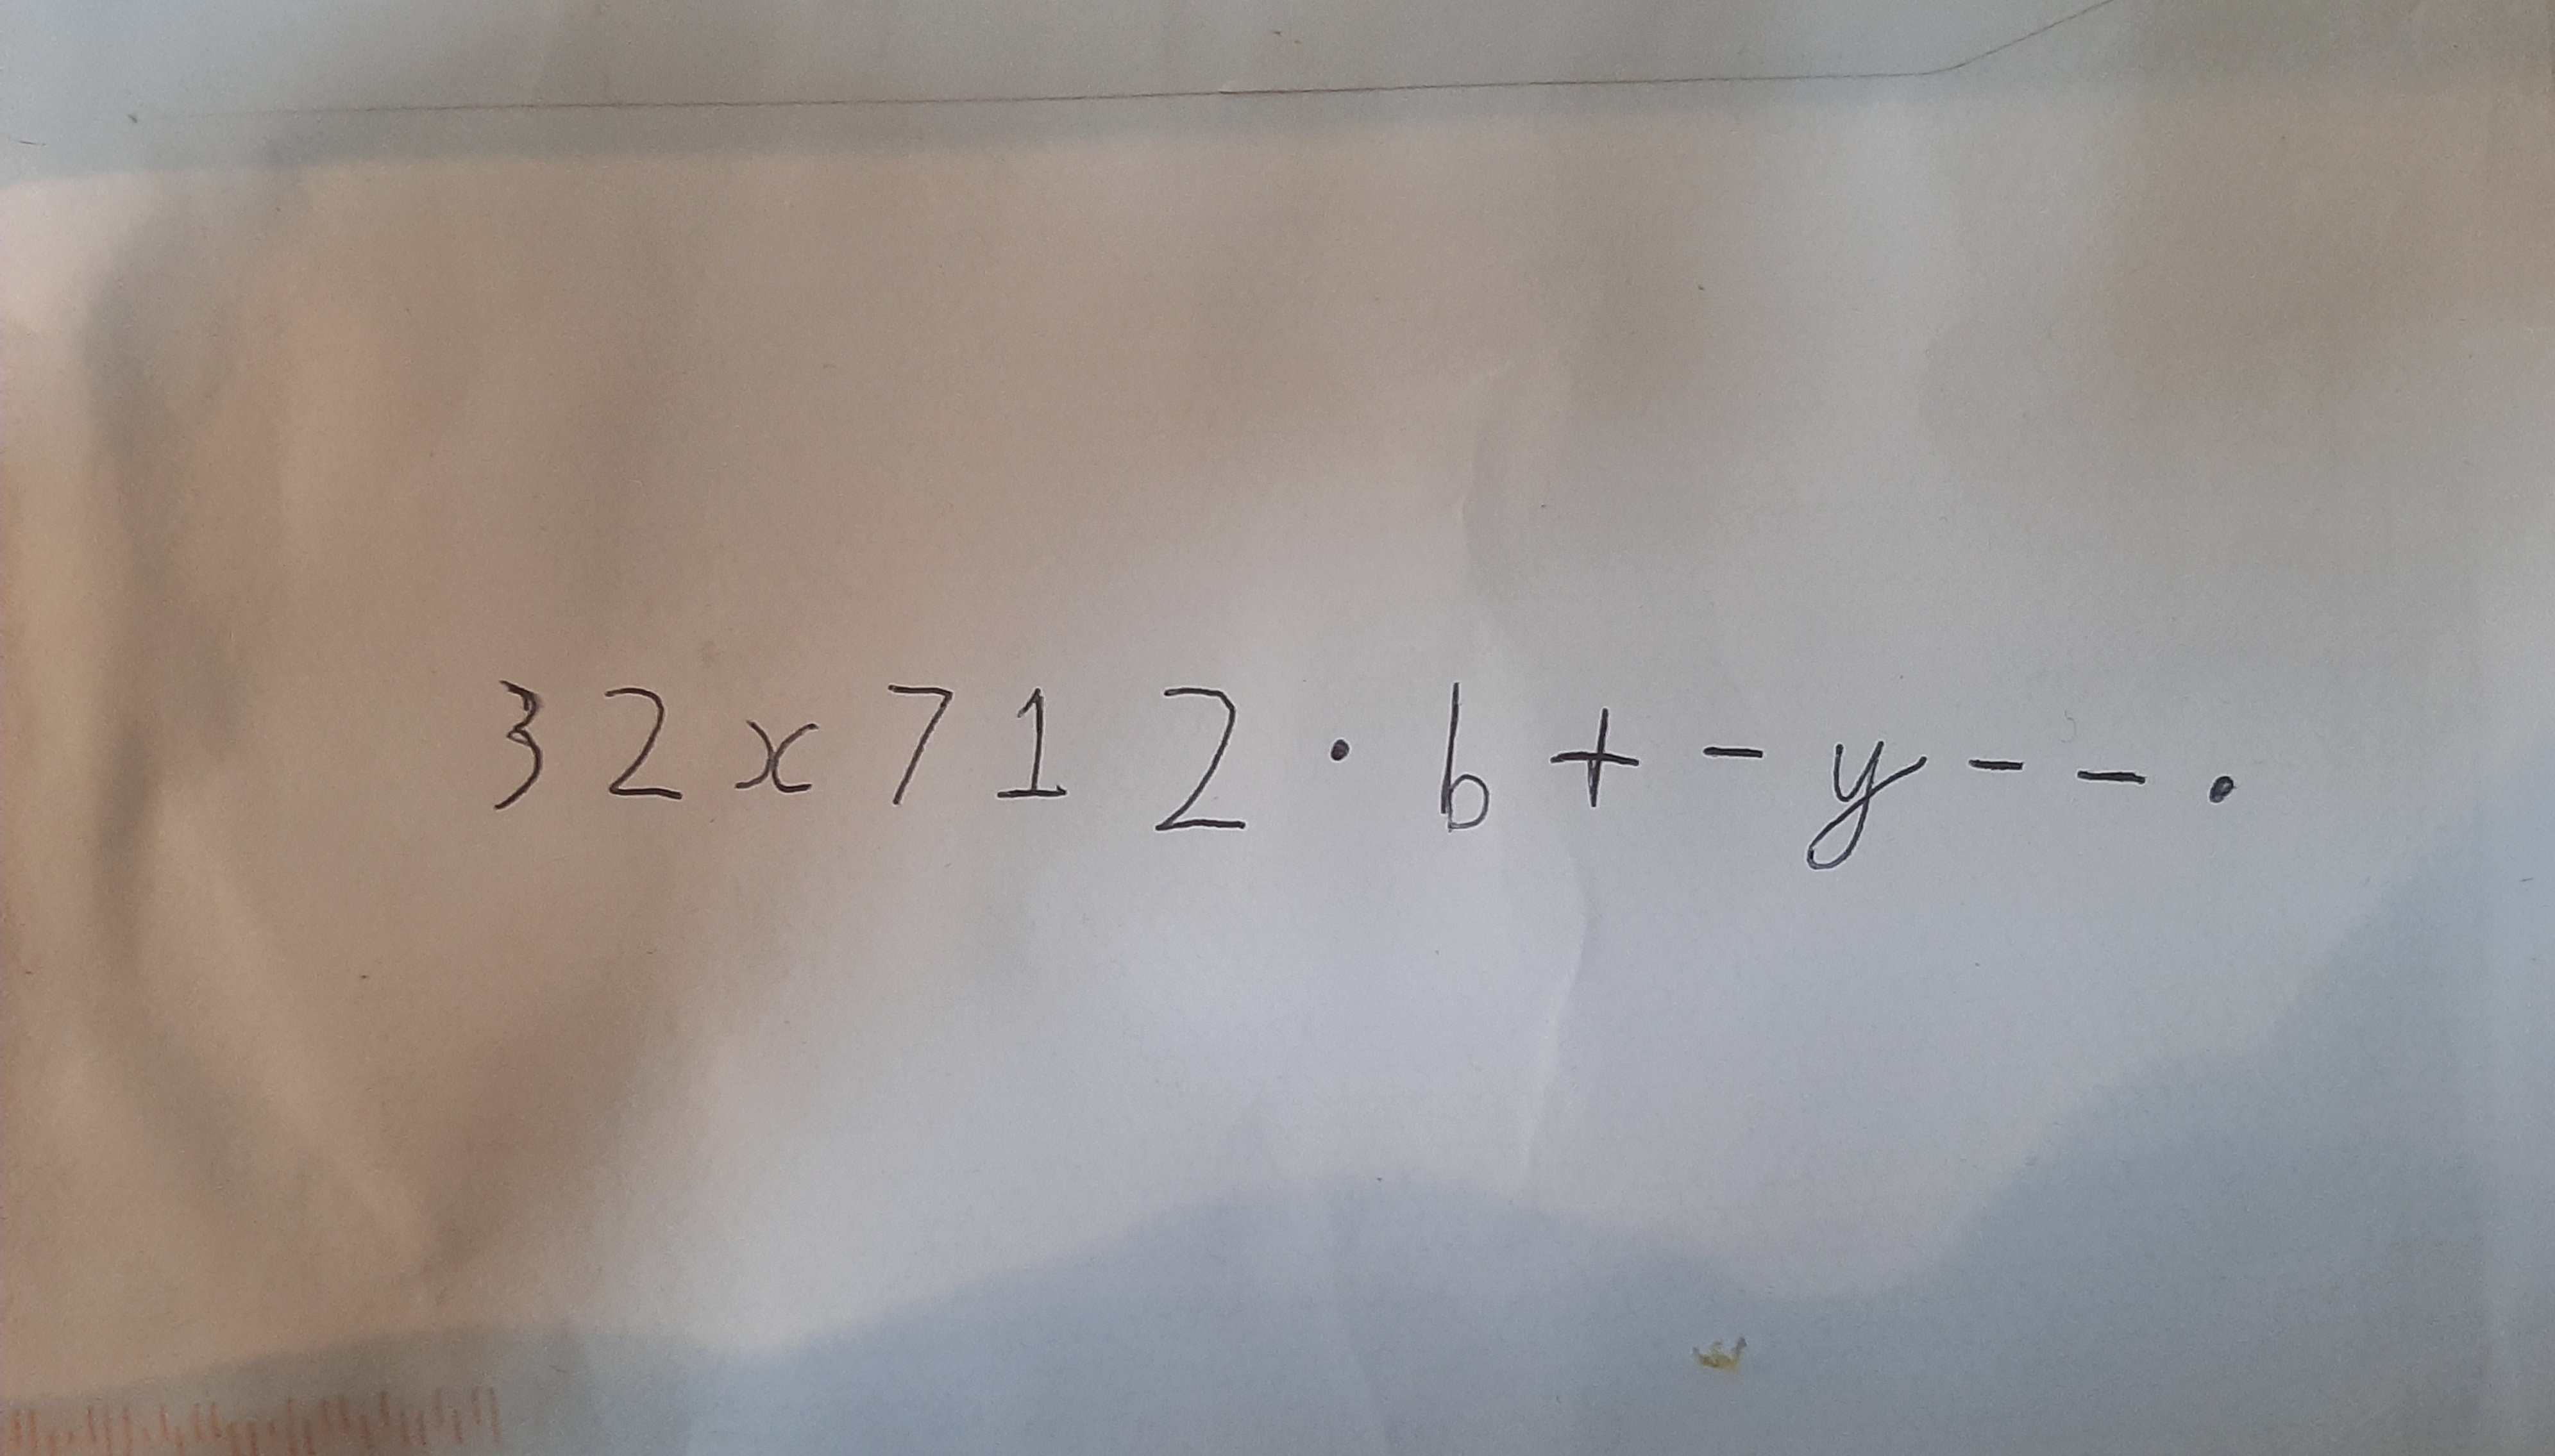 32x712·b+-y--.